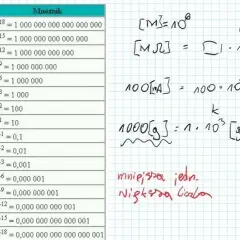 Mnożnik
18 = 1 000 000 000 000 000 000
15 = 1 000 000 000 000 000
12 = 1 000 000 000 000
9 = 1 000 000 000
6 = 1 000 000
3 = 1 000
2 = 100
1 = 10
-1 = 0,1
-2 = 0,01
-3 = 0,001
-6 = 0,000 001
-9 = 0,000 000 001
-12 = 0,000 000 000 001
-15 = 0,000 000 000 000 001
-18 = 0,000 000 000 000 000 001
[M]=10⁶
[MΩ] = 1 ·
100[nA] = 100·10
k
1000[g] = 1·10⁻³ [g
mniejsza jedn.
większa liczba